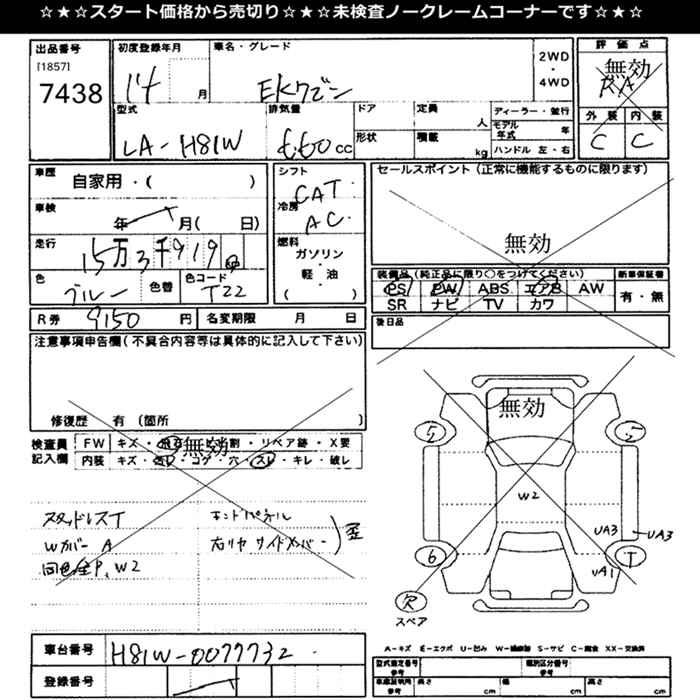 ☆★☆★スタート価格から売切り☆★☆★未検査ノークレームコーナーです☆★☆
出品番号
[1857]
7438
初度登録年月
17年 月
車名・グレード
EKワゴン
2WD
・
4WD
評価点
無効
RA
外装 内装
C C
型式
LA-H81W
排気量
660cc
ドア
形状
定員 人
積載 kg
ディーラー・並行
モデル年式 年
ハンドル 左・右
車歴 自家用・( )
車検 年 月( 日)
走行 15万3千919
色 ブルー 色替
色コード T22
シフト CAT
冷房 AC
燃料
ガソリン
・
軽・油
( )
セールスポイント(正常に機能するものに限ります)
無効
装備品(純正品に限り○をつけてください)
PS PW ABS エアB AW
SR ナビ TV カワ
新車保証書
有・無
後日品
R券 9150 円
名変期限 月 日
注意事項申告欄(不具合内容等は具体的に記入して下さい)
修復歴 有(箇所 )
検査員
記入欄
FW キズ・ ・リペア跡・X要
内装 キズ・ ・コゲ・穴・スレ・キレ・破レ
無効
スタッドレスT
Wカバー A
同色全P、W2
エンドパネル
右リヤ サイドメンバー
無効
5 5
W2
UA3
UA3
6 T
UA1
R
スペア
車台番号 H81W-0077732
登録番号
A-キズ E-エクボ U-凹み W-補修跡 S-サビ C-腐食 XX-交換済
型式指定番号
参考
類別区分番号
参考
車庫証明用
参考
長さ cm
幅 cm
高さ cm